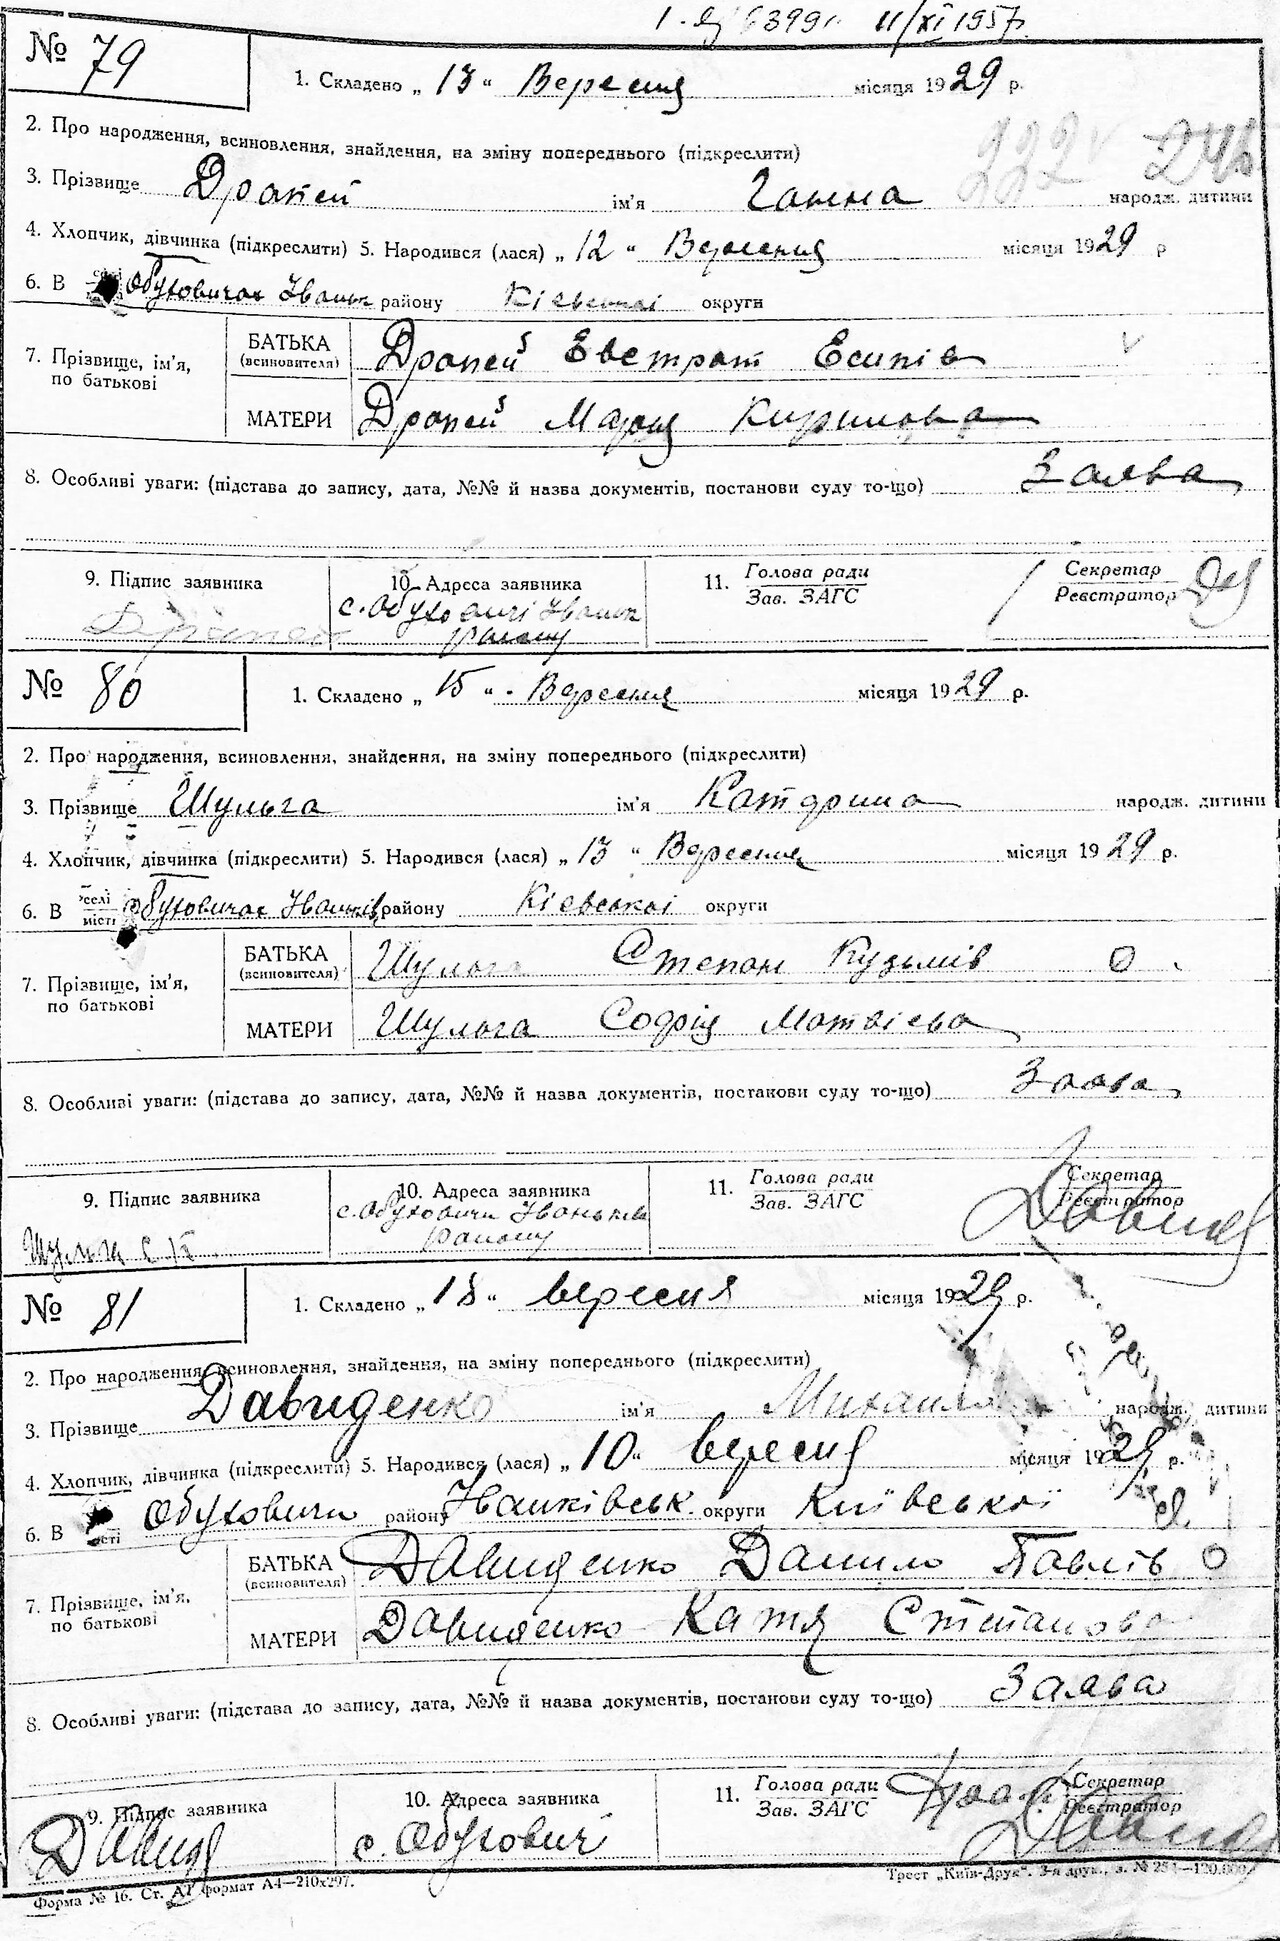 11/XI 1957р.
№ 79
1. Складено „ 13 “ Вересня місяця 1929 р.
2. Про народження, всиновлення, знайдення, на зміну попереднього (підкреслити)
222 246
3. Прізвище Драпей ім'я Ганна народж. дитини
4. Хлопчик, дівчинка (підкреслити) 5. Народився (лася) „ 12 “ Вересня місяця 1929 р
6. В Обуховичах Іваньк району Київської округи
7. Прізвище, ім'я, по батькові
БАТЬКА (всиновителя) Драпей Евстрат Есипів
МАТЕРИ Драпей Марія Кирилова
8. Особливі уваги: (підстава до запису, дата, №№ й назва документів, постанови суду то-що) Заява
9. Підпис заявника 10. Адреса заявника 11. Голова ради Секретар
Зав. ЗАГС Реєстратор
Драпей с. Обуховичі Іваньк
району
№ 80
1. Складено „ 15 “ Вересня місяця 1929 р.
2. Про народження, всиновлення, знайдення, на зміну попереднього (підкреслити)
3. Прізвище Шульга ім'я Катерина народж. дитини
4. Хлопчик, дівчинка (підкреслити) 5. Народився (лася) „ 13 “ Вересня місяця 1929 р.
6. В селі місті Обуховичах Іваньків району Кієвської округи
7. Прізвище, ім'я, по батькові
БАТЬКА (всиновителя) Шульга Степан Кузьмів
МАТЕРИ Шульга Софія Матвієва
8. Особливі уваги: (підстава до запису, дата, №№ й назва документів, постанови суду то-що) Заява
9. Підпис заявника 10. Адреса заявника 11. Голова ради Секретар
Зав. ЗАГС Реєстратор
Шульга С К с. Обуховичи Іваньків
району
№ 81
1. Складено „ 18 “ вересня місяця 1929 р.
2. Про народження, всиновлення, знайдення, на зміну попереднього (підкреслити)
3. Прізвище Давиденко ім'я Михайло народж. дитини
4. Хлопчик, дівчинка (підкреслити) 5. Народився (лася) „ 10 “ вересня місяця 1929 р.
6. В Обуховичи району Іванківськ. округи Київської
7. Прізвище, ім'я, по батькові
БАТЬКА (всиновителя) Давиденко Данило Павлів
МАТЕРИ Давиденко Катя Степанова
8. Особливі уваги: (підстава до запису, дата, №№ й назва документів, постанови суду то-що) Заява
9. Підпис заявника 10. Адреса заявника 11. Голова ради Секретар
Зав. ЗАГС Реєстратор
Давид с. Обуховичі
Форма № 16. Ст. А1 формат А4—210x297. Трест „Київ-Друк“. 3-я друк., з. № 254—120.000.